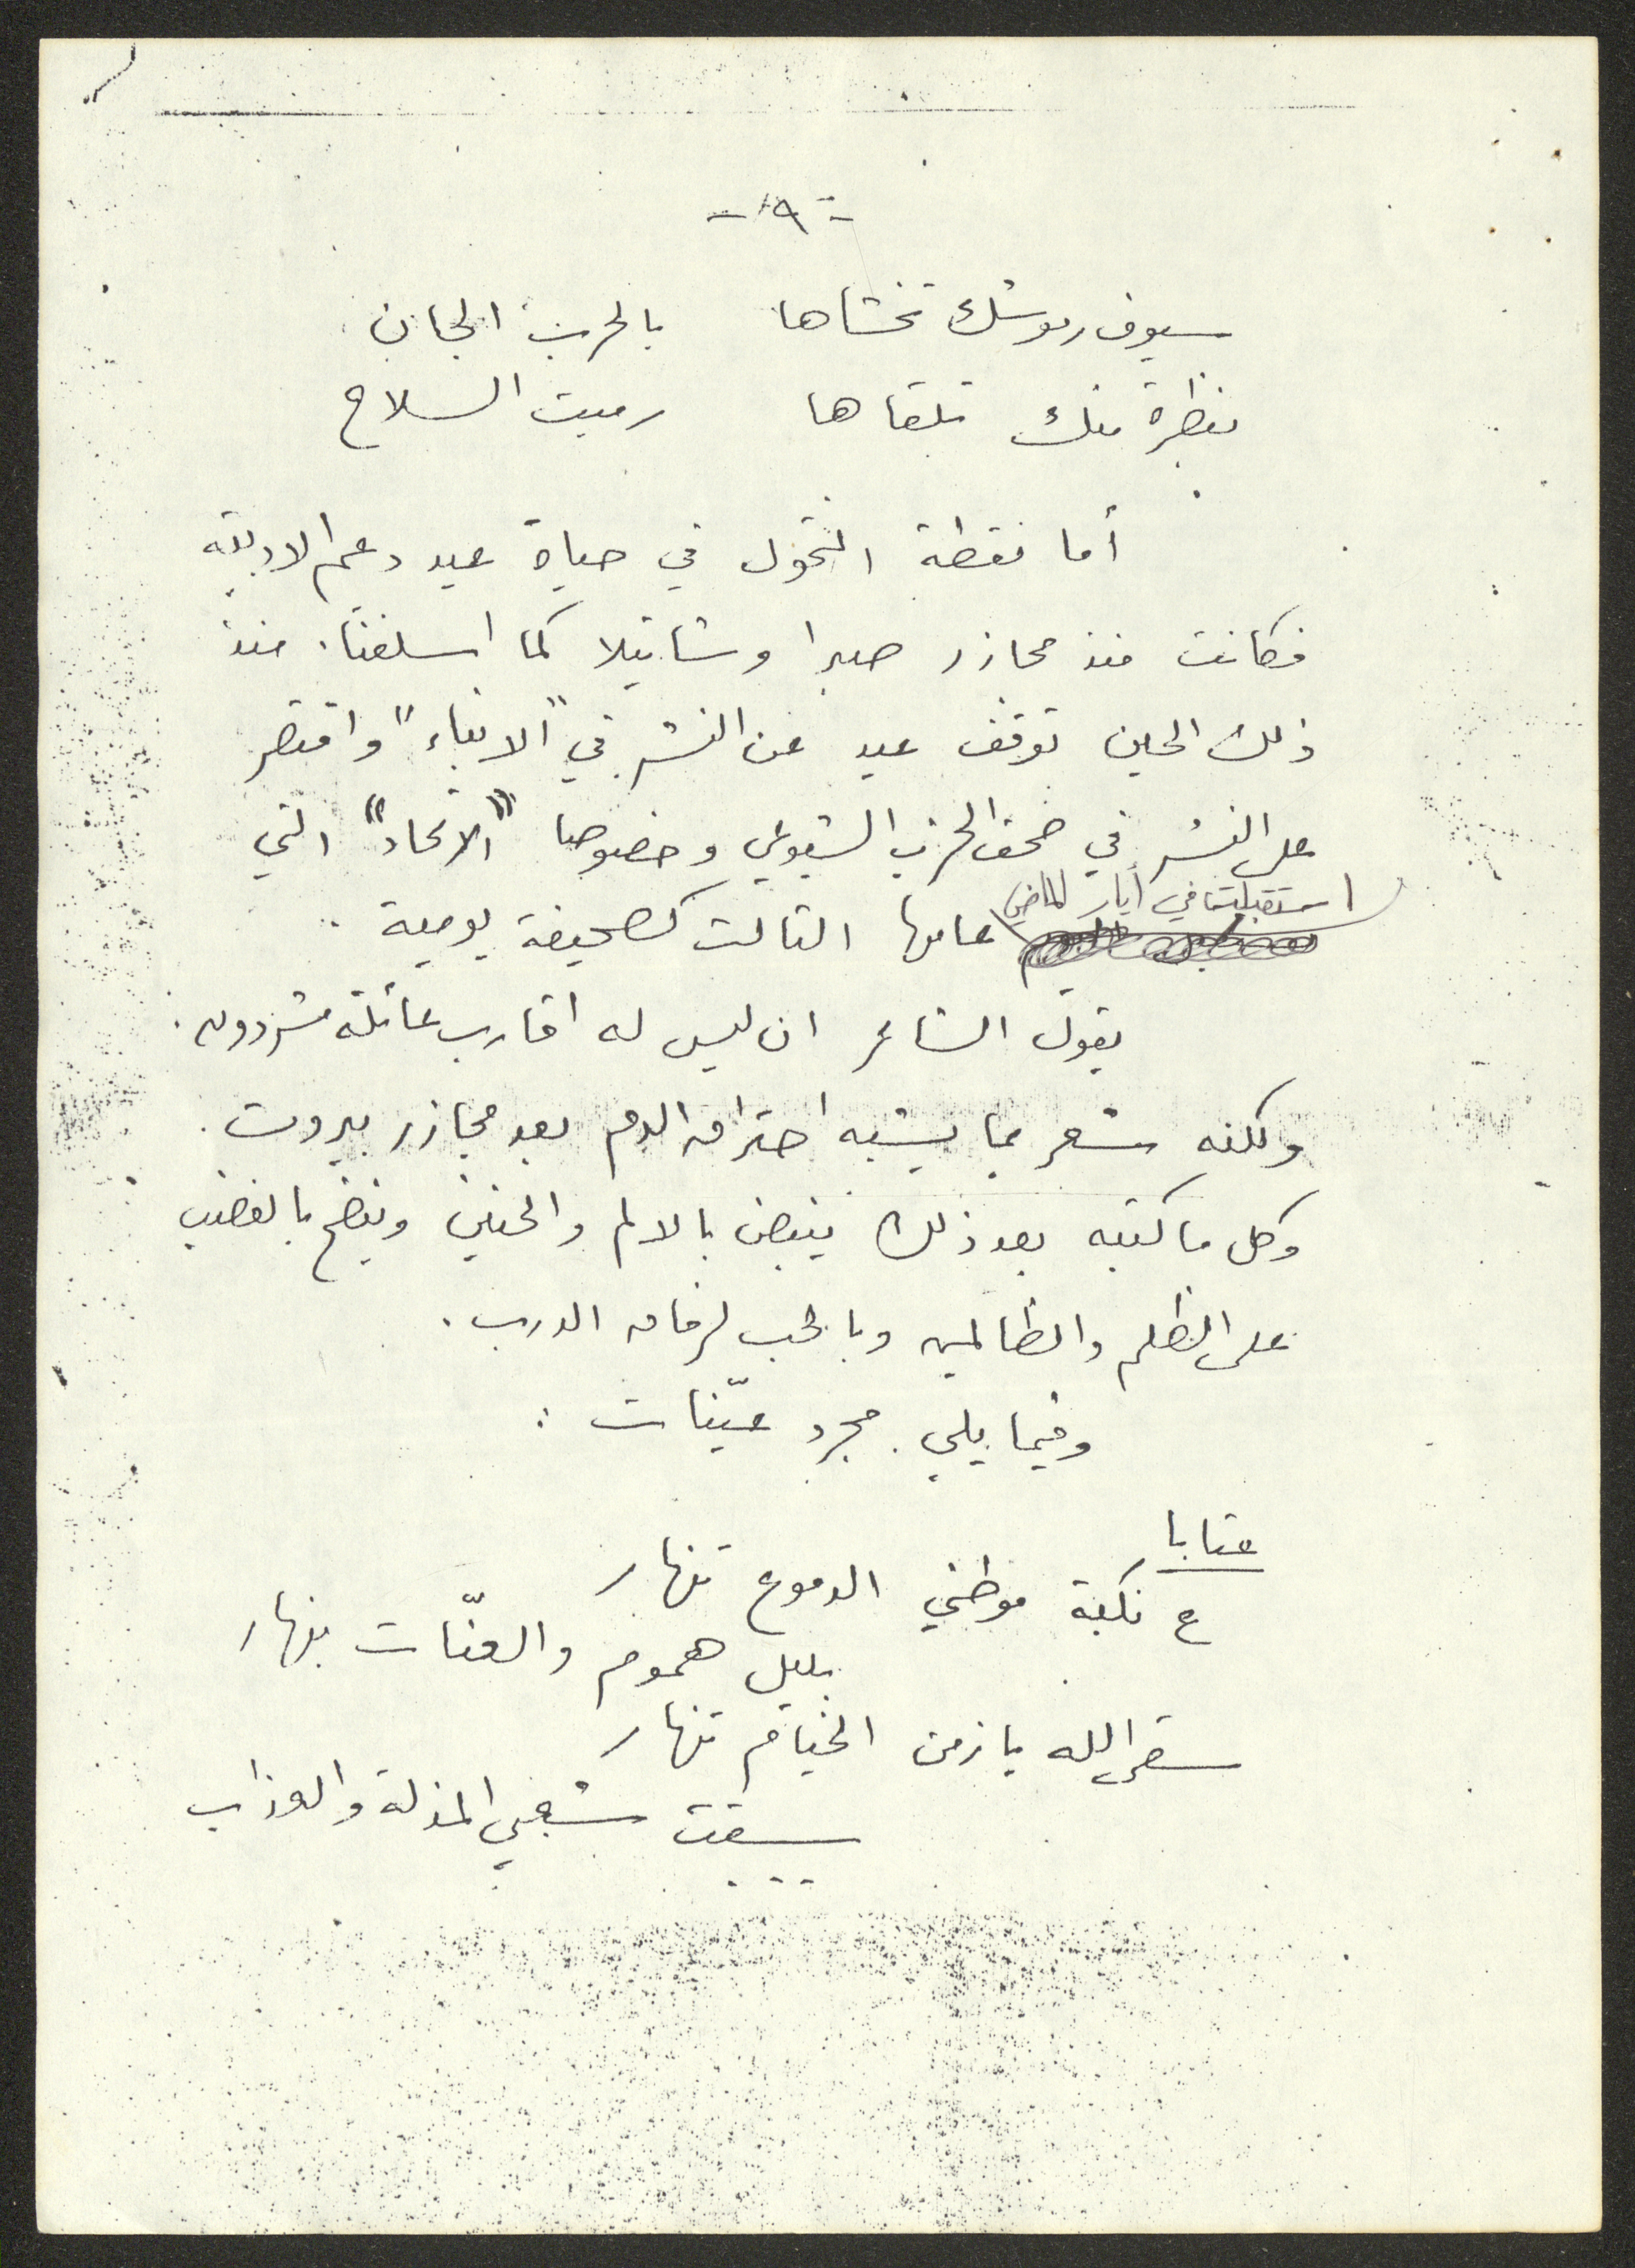 - ٩ -
سيوف رموشك تخشاها بالحرب الجان
بنظرة منك تلقاها رميت السلاح
أما نقطة التحول في حياة عيد دعيم الادبية
فكانت منذ مجازر صبرا وشاتيلا كما اسلفنا. منذ
ذلك الحين توقف عيد عن النشر في "الانباء" واقتصر
على النشر في صحف الحزب الشيوعي وخصوصا "الاتحاد" التي
استقبلت في أيار الماضي
عامها الثالث كصحيفة يومية.
يقول الشاعر ان ليس له اقارب عائلة مشردون.
ولكنه شعر بما يشبه احتراق الدم بعد مجازر بيروت.
وكل ما كتبه بعد ذلك ينبض بالالم والحنين وينضح بالغضب
على الظلم والظالمين وبالحب لرفاق الدرب.
وفيما يلي مجرد عيّنات:
عتابا
ع نكبة موطني الدموع تنهار
بليل هموم والعنّات بنهار
سقى الله يا زمن الخيام تنهار
سقيت شعبي المذلة والعذاب
---